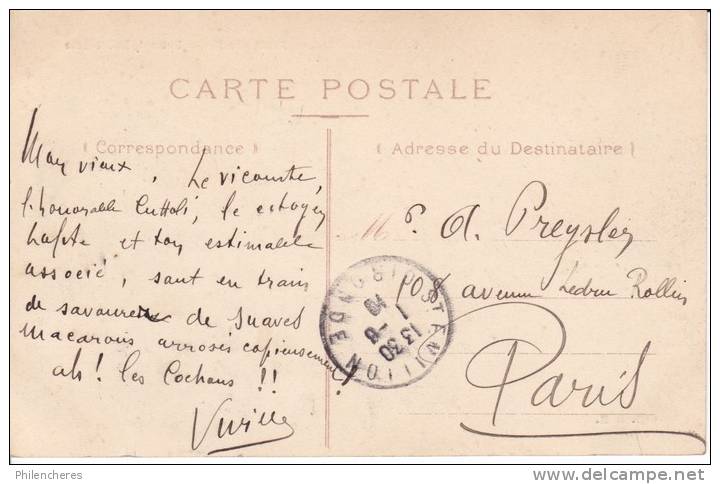 CARTE POSTALE
( Correspondance )
( Adresse du Destinataire )
Mon vieux, Le vicomte,
l'honorable Cuttoli, le citoyen
Lafite et ton estimable
associé, sont en train
de savourer de suaves
macarons arrosés copieusement !
ah ! les Cochons !!
M. A. Preysler
108 avenue Ledru Rollin
Paris
ST EMILION
GIRONDE
13 30
1 - 8
Philencheres
www.delcampe.net